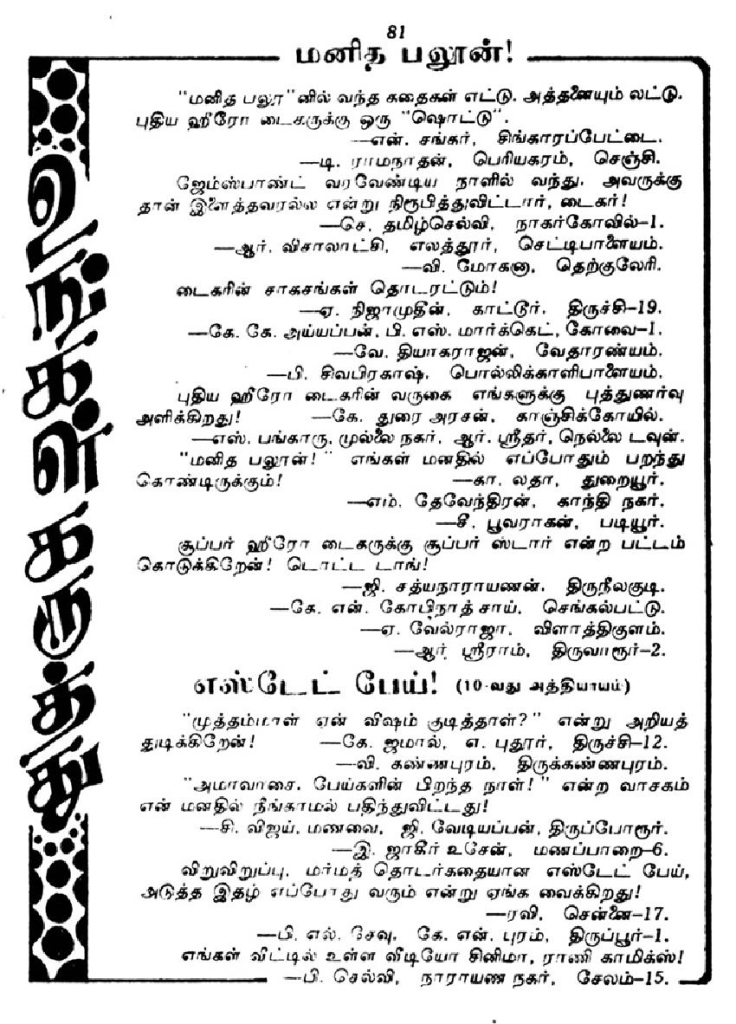 81
மனித பலூன்!
உங்கள் கருத்து
"மனித பலூ"னில் வந்த கதைகள் எட்டு. அத்தனையும் லட்டு.
புதிய ஹீரோ டைகருக்கு ஒரு "ஷொட்டு".
—என். சங்கர், சிங்காரப்பேட்டை.
—டி. ராமநாதன், பெரியகரம், செஞ்சி.
ஜேம்ஸ்பாண்ட் வரவேண்டிய நாளில் வந்து, அவருக்கு
தான் இளைத்தவரல்ல என்று நிரூபித்துவிட்டார், டைகர்!
—செ. தமிழ்செல்வி, நாகர்கோவில்-1.
—ஆர். விசாலாட்சி, எலத்தூர், செட்டிபாளையம்.
—வி. மோகனா, தெற்குலேரி.
டைகரின் சாகசங்கள் தொடரட்டும்!
—ஏ. நிஜாமுதீன், காட்டூர், திருச்சி-19.
—கே. கே. அய்யப்பன், பி. எஸ். மார்க்கெட், கோவை-1.
—வே. தியாகராஜன், வேதாரண்யம்.
—பி. சிவபிரகாஷ், பொல்லிக்காளிபாளையம்.
புதிய ஹீரோ டைகரின் வருகை எங்களுக்கு புத்துணர்வு
அளிக்கிறது! —கே. துரை அரசன், காஞ்சிக்கோயில்.
—எஸ். பங்காரு, முல்லை நகர். ஆர். ஸ்ரீதர், நெல்லை டவுன்.
"மனித பலூன்!" எங்கள் மனதில் எப்போதும் பறந்து
கொண்டிருக்கும்! —கா. லதா, துறையூர்.
—எம். தேவேந்திரன், காந்தி நகர்.
—சீ. பூவராகன், படியூர்.
சூப்பர் ஹீரோ டைகருக்கு சூப்பர் ஸ்டார் என்ற பட்டம்
கொடுக்கிறேன்! டொட்ட டாங்!
—ஜி. சத்யநாராயணன், திருநீலகுடி.
—கே. என். கோபிநாத் சாய், செங்கல்பட்டு.
—ஏ. வேல்ராஜா, விளாத்திகுளம்.
—ஆர். ஸ்ரீராம், திருவாரூர்-2.
எஸ்டேட் பேய்! (10-வது அத்தியாயம்)
"முத்தம்மாள் ஏன் விஷம் குடித்தாள்?" என்று அறியத்
துடிக்கிறேன்! —கே. ஜமால், எ. புதூர், திருச்சி-12.
—வி. கண்ணபுரம், திருக்கண்ணபுரம்.
"அமாவாசை, பேய்களின் பிறந்த நாள்!" என்ற வாசகம்
என் மனதில் நீங்காமல் பதிந்துவிட்டது!
—சி. விஜய், மணவை, ஜி. வேடியப்பன், திருப்போரூர்.
—இ. ஜாகீர் உசேன், மணப்பாறை-6.
விறுவிறுப்பு, மர்மத் தொடர்கதையான எஸ்டேட் பேய்,
அடுத்த இதழ் எப்போது வரும் என்று ஏங்க வைக்கிறது!
—ரவி, சென்னை-17.
—பி. எல். சேவு, கே. என். புரம், திருப்பூர்-1.
எங்கள் வீட்டில் உள்ள வீடியோ சினிமா, ராணி காமிக்ஸ்!
—பி. செல்வி, நாராயண நகர், சேலம்-15.